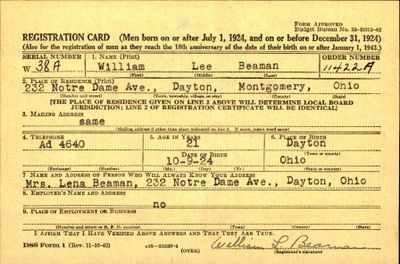 FORM APPROVED
Budget Bureau No. 33-R012-42
REGISTRATION CARD (Men born on or after July 1, 1924, and on or before December 31, 1924)
(Also for the registration of men as they reach the 18th anniversary of the date of their birth on or after January 1, 1943.)
SERIAL NUMBER 1. NAME (Print) ORDER NUMBER
W 38A William Lee Beaman 11422A
(First) (Middle) (Last)
2. PLACE OF RESIDENCE (Print)
232 Notre Dame Av., Dayton, Montgomery, Ohio
(Number and street) (Town, township, village, or city) (County) (State)
[THE PLACE OF RESIDENCE GIVEN ON LINE 2 ABOVE WILL DETERMINE LOCAL BOARD
JURISDICTION; LINE 2 OF REGISTRATION CERTIFICATE WILL BE IDENTICAL]
3. MAILING ADDRESS
same
[Mailing address if other than place indicated on line 2. If same, insert word same]
4. TELEPHONE 5. AGE IN YEARS 6. PLACE OF BIRTH
Ad 4640 21 Dayton
DATE OF BIRTH (Town or county)
10-9-24 Ohio
(Exchange) (Number) (Mo.) (Day) (Yr.) (State or country)
7. NAME AND ADDRESS OF PERSON WHO WILL ALWAYS KNOW YOUR ADDRESS
Mrs. Lena Beaman, 232 Notre Dame Ave., Dayton, Ohio
8. EMPLOYER'S NAME AND ADDRESS
no
9. PLACE OF EMPLOYMENT OR BUSINESS
(Number and street or R. F. D. number) (Town) (County) (State)
I AFFIRM THAT I HAVE VERIFIED ABOVE ANSWERS AND THAT THEY ARE TRUE.
DSS Form 1 (Rev. 11-16-42) (OVER) William L. Beaman
(Registrant's signature)